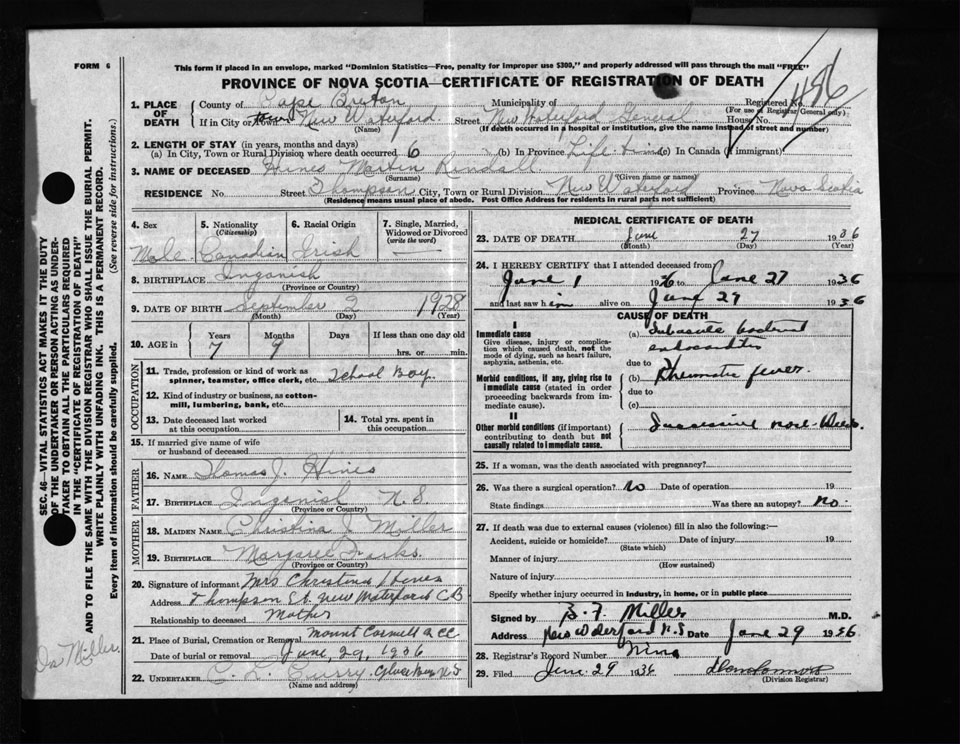 FORM 6
This form if placed in an envelope, marked "Dominion Statistics—Free, penalty for improper use $300," and properly addressed will pass through the mail "FREE"
PROVINCE OF NOVA SCOTIA—CERTIFICATE OF REGISTRATION OF DEATH
486
1. PLACE OF DEATH
County of Cape Breton Municipality of Registered No.
(For use of Registrar General only)
If in City or Town New Waterford Street New Waterford General House No.
(Name) (If death occurred in a hospital or institution, give the name instead of street and number)
2. LENGTH OF STAY (in years, months and days)
(a) In City, Town or Rural Division where death occurred 6 (b) In Province Life time (c) In Canada (if immigrant)
3. NAME OF DECEASED Hines Martin
(Surname) (Given name or names)
RESIDENCE No Street Thompson City, Town or Rural Division New Waterford Province Nova Scotia
(Residence means usual place of abode. Post Office Address for residents in rural parts not sufficient)
4. Sex Male
5. Nationality (Citizenship) Canadian
6. Racial Origin Irish
7. Single, Married, Widowed or Divorced (write the word) —
8. BIRTHPLACE Inganish
(Province or Country)
9. DATE OF BIRTH September 2 1928
(Month) (Day) (Year)
10. AGE in Years Months Days If less than one day old
7 9 hrs. or min.
OCCUPATION
11. Trade, profession or kind of work as spinner, teamster, office clerk, etc. School Boy
12. Kind of industry or business, as cotton-mill, lumbering, bank, etc.
13. Date deceased last worked at this occupation
14. Total yrs. spent in this occupation
15. If married give name of wife or husband of deceased
FATHER
16. NAME Thomas J. Hines
17. BIRTHPLACE Inganish N.S.
(Province or Country)
MOTHER
18. MAIDEN NAME Christina J Miller
19. BIRTHPLACE Margaree Forks.
(Province or Country)
20. Signature of informant Mrs Christina Hines
Address Thompson St. New Waterford C B
Relationship to deceased Mother
21. Place of Burial, Cremation or Removal Mount Carmel
Date of burial or removal June, 29, 1936
22. UNDERTAKER C. L. Curry. Glace Bay N.S
(Name and address)
MEDICAL CERTIFICATE OF DEATH
23. DATE OF DEATH June 27 1936
(Month) (Day) (Year)
24. I HEREBY CERTIFY that I attended deceased from
June 1 1936 to June 27 1936
and last saw him alive on June 27 1936
CAUSE OF DEATH
I
Immediate cause
Give disease, injury or complication which caused death, not the mode of dying, such as heart failure, asphyxia, asthenia, etc.
(a) Subacute bacterial endocarditis
due to
Morbid conditions, if any, giving rise to immediate cause (stated in order proceeding backwards from immediate cause).
(b) Rheumatic fever.
due to
(c)
II
Other morbid conditions (if important) contributing to death but not causally related to immediate cause.
nose-bleeds.
25. If a woman, was the death associated with pregnancy?
26. Was there a surgical operation? no Date of operation 19
State findings Was there an autopsy? no.
27. If death was due to external causes (violence) fill in also the following:—
Accident, suicide or homicide? Date of injury 19
(State which)
Manner of injury
(How sustained)
Nature of injury
Specify whether injury occurred in industry, in home, or in public place
Signed by S. F. Miller M.D.
Address New Waterford N.S Date June 29 1936
28. Registrar's Record Number Nine
29. Filed June 29 1936
(Division Registrar)
SEC. 46—VITAL STATISTICS ACT MAKES IT THE DUTY
OF THE UNDERTAKER OR PERSON ACTING AS UNDER-
TAKER TO OBTAIN ALL THE PARTICULARS REQUIRED
IN THE "CERTIFICATE OF REGISTRATION OF DEATH"
AND TO FILE THE SAME WITH THE DIVISION REGISTRAR WHO SHALL ISSUE THE BURIAL PERMIT.
WRITE PLAINLY WITH UNFADING INK. THIS IS A PERMANENT RECORD.
Every item of information should be carefully supplied. (See reverse side for instructions.)
Miller.